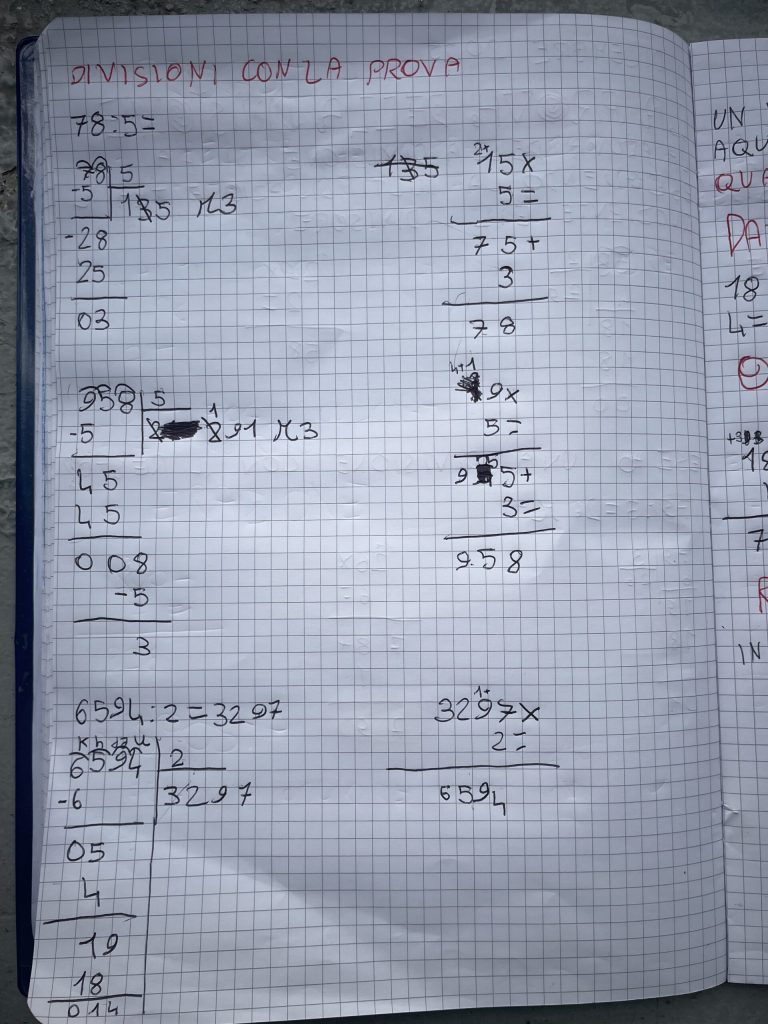 DIVISIONI CON LA PROVA
78:5=
78 5
-5 15 R3
-28
25
03
135
2+
15x
5=
75+
3
78
958 5
-5 191 R3
45
45
008
-5
3
4+1
9x
5=
955+
3=
958
6594:2=3297
K h da u
6594 2
-6 3297
05
4
19
18
014
1+
3297x
2=
6594
UN
AQU
QUA
DA
18
4=
18
7
R
IN